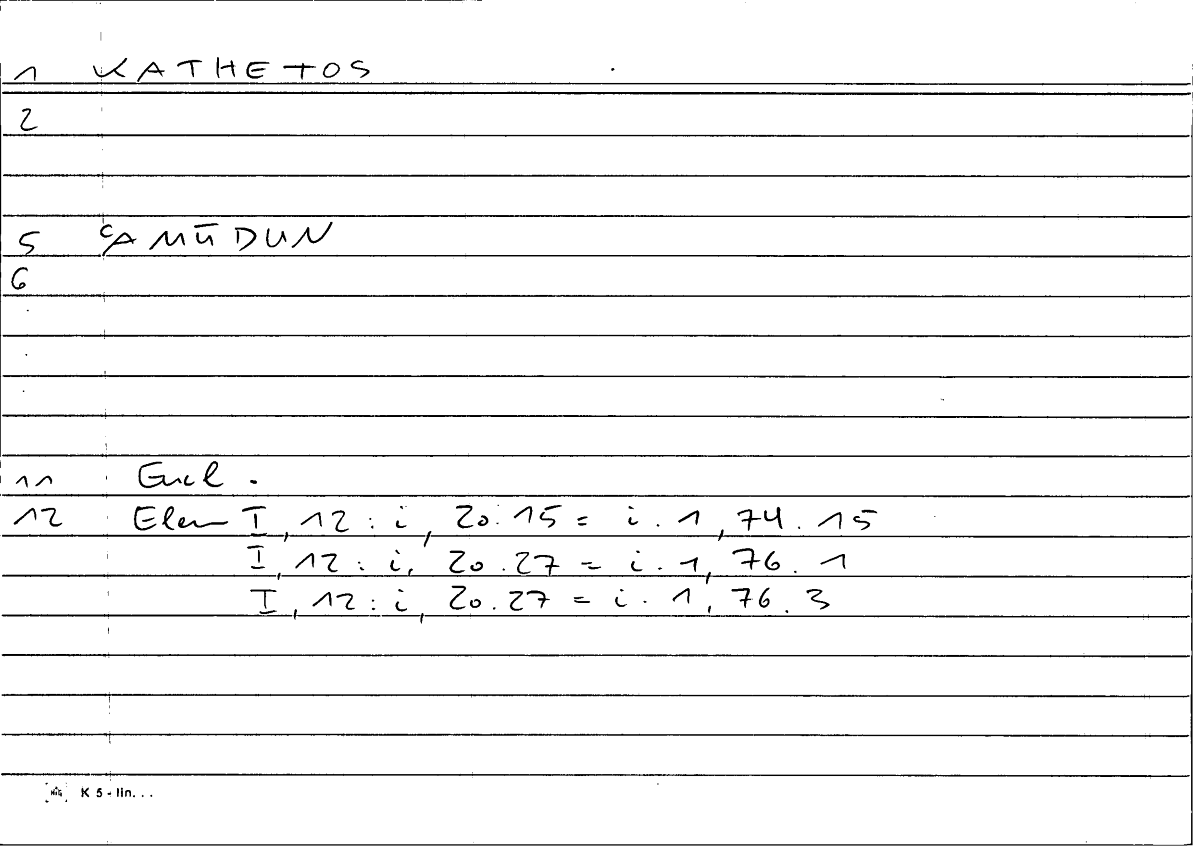 1 KATHETOS
2
5 ʿAMŪDUN
6
11 Eucl.
12 Elem I, 12: i, 20.15 = i.1, 74.15
I, 12: i, 20.27 = i.1, 76.1
I, 12: i, 20.27 = i.1, 76.3
K 5 - lin...